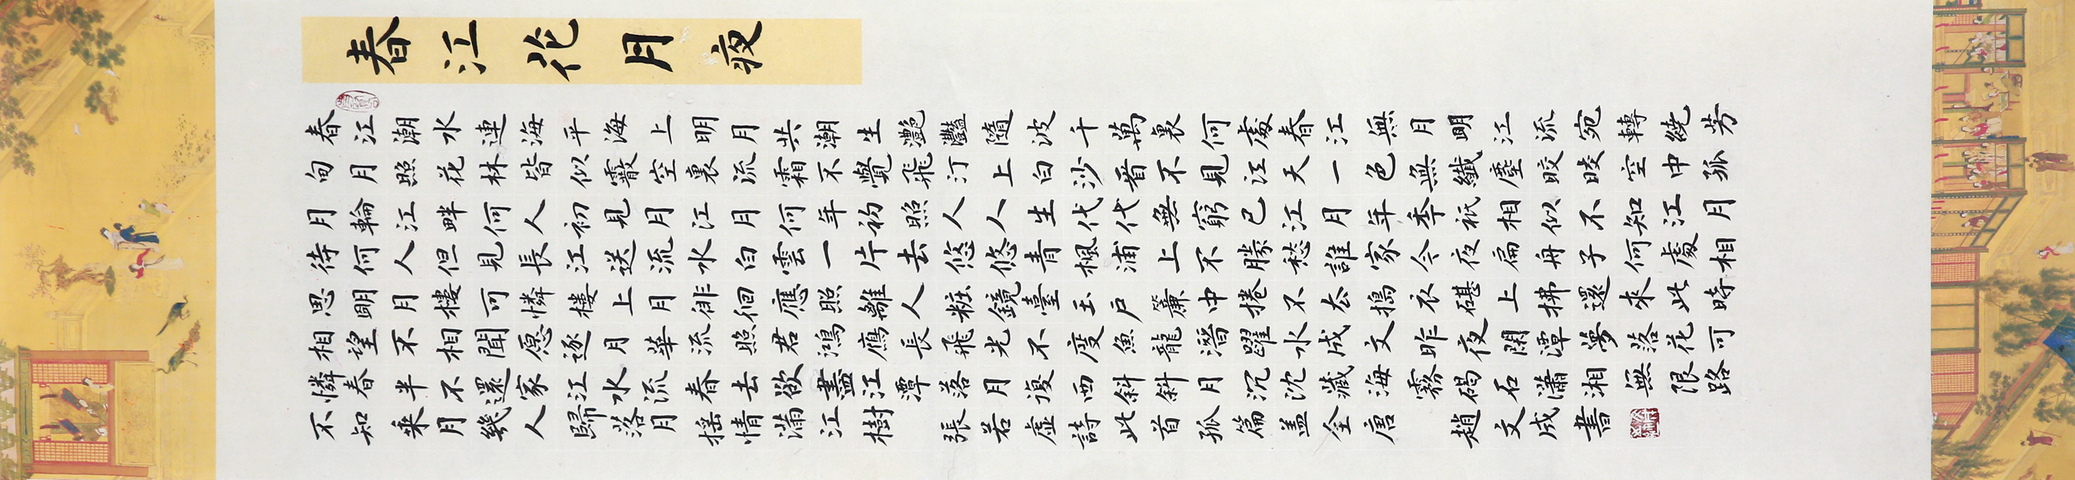 春江花月夜
春江潮水連海平海上明月共潮生灔灔隨波千萬裏何處春江無月明江流宛轉繞芳
旬月照花林皆似霰空裏流霜不覺飛汀上白沙看不見江天一色無纖塵皎皎空中孤
月輪江畔何人初見月江月何年初照人人生代代無窮已江月年年祇相似不知江月
待何人但見長江送流水白雲一片去悠悠青楓浦上不勝愁誰家今夜扁舟子何處相
思明月樓可憐樓上月徘徊應照離人粧鏡臺玉戶簾中捲不去搗衣碪上拂還來此時
相望不相聞愿逐月華流照君鴻鴈長飛光不度魚龍潛躍水成文昨夜閑潭夢落花可
憐春半不還家江水流春去欲盡江潭落月復西斜斜月沉沉藏海霧碣石瀟湘無限路
不知乘月幾人歸落月搖情滿江樹張若虛詩此首孤篇蓋全唐趙文成書